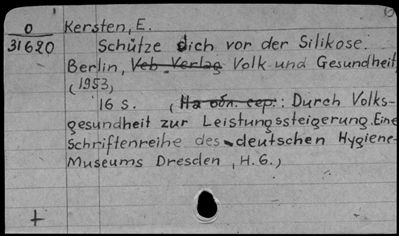 0 Kersten, E.
31620 Schütze dich vor der Silikose.
Berlin, Veb-Verlag Volk und Gesundheit
(1953)
16 S. (На обл. сер.: Durch Volks-
gesundheit zur Leistungssteigerung. Eine
Schriftenreihe des deutschen Hygiene-
Museums Dresden, H. 6.)